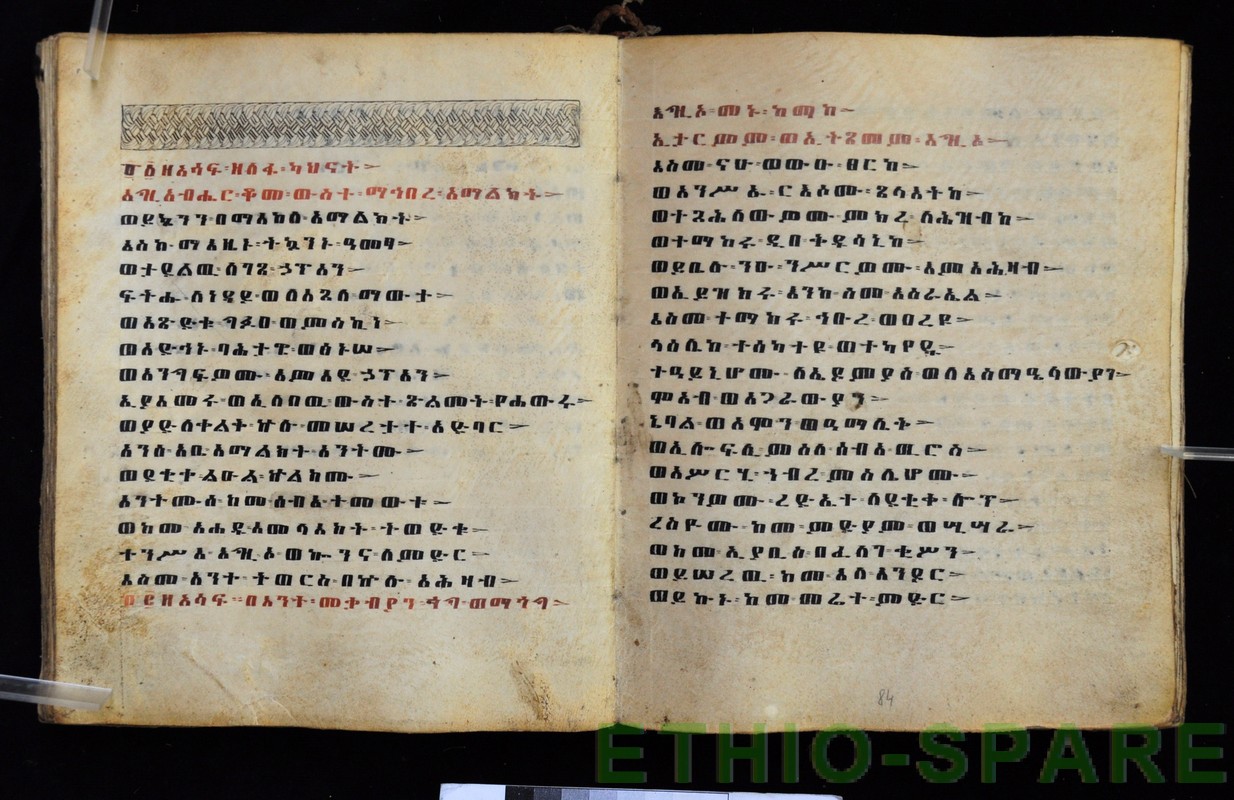 ፹፩ ዘአሳፍ፡ ዘሰፋ፡ ካህናት፦
እግዚአብሔር፡ ቆመ፡ ውስተ፡ ማኅበረ፡ አማልክት፦
ወይኴንን፡ በማእከለ፡ አማልክት፦
እስከ፡ ማእዜኑ፡ ትኴንኑ፡ ዓመፃ፦
ወታደልዉ፡ ለገጸ፡ ኃጥአን፦
ፍትሑ፡ ለነዳይ፡ ወለእጓለ፡ ማውታ፦
ወአጽድቁ፡ ግፉዐ፡ ወምስኪነ፦
ወአድኅኑ፡
ወአንግፍዎሙ፡ እምእደ፡ ኃጥአን፦
ኢያእመሩ፡ ወኢለበዉ፡ ውስተ፡ ጽልመት፡ የሐውሩ፦
ወያድለቀልቅ፡ ኵሉ፡ መሠረታተ፡ አድባር፦
አንሰ፡ እቤ፡ አማልክት፡ አንትሙ፦
ወደቂቀ፡ ልዑል፡ ኵልክሙ፦
አንትሙሰ፡ ከመ፡ ሰብእ፡ ትመውቱ፦
ወከመ፡ አሐዱ፡ እመላእክት፡ ትወድቁ፦
ተንሥእ፡ እግዚኦ፡ ወኰንና፡ ለምድር፦
እስመ፡ አንተ፡ ትወርስ፡ በኵሉ፡ አሕዛብ፦
፹፪ ዘአሳፍ፡ በእንተ፡ መቃብያን፡ ጎግ፡ ወማጎግ፦
እግዚኦ፡ መኑ፡ ከማከ፦
ኢታርምም፡ ወኢትጸመም፡ እግዚኦ፦
እስመ፡ ናሁ፡ ወውዑ፡ ፀርከ፦
ወአንሥኡ፡ ርእሶሙ፡ ጸላእትከ፦
ወተጓሕለውዎሙ፡ ምክረ፡ ለሕዝብከ፦
ወተማከሩ፡ ዲበ፡ ቅዱሳኒከ፦
ወይቤሉ፡ ንዑ፡ ንሥርዎሙ፡ እምአሕዛብ፦
ወኢይዝከሩ፡ እንከ፡ ስመ፡ እስራኤል፦
እስመ፡ ተማከሩ፡ ኅቡረ፡ ወዐረዩ፦
ላዕሌከ፡ ተሰካተዩ፡ ወተካየዱ፦
ተዓይኒሆሙ፡ ለኢዶምያስ፡ ወለእስማዒላውያን፦
ሞአብ፡ ወአጋራውያን፦
ጌባል፡ ወአሞን፡ ወዓማሌቅ፦
ወኢሎፍሊ፡ ምስለ፡ ሰብአ፡ ጢሮስ፦
ወአሦርሂ፡ ኀብረ፡ ምስሌሆሙ፦
ወኮንዎሙ፡ ረድኤተ፡ ለደቂቀ፡ ሎጥ፦
ረስዮሙ፡ ከመ፡ ምድያም፡ ወሢሣራ፦
ወከመ፡ ኢያቢስ፡ በፈለገ፡ ቂሦን፦
ወይሠረዉ፡ ከመ፡ እለ፡ እንዶር፦
ወይኩኑ፡ ከመ፡ መሬተ፡ ምድር፦
84
ETHIO-SPARE